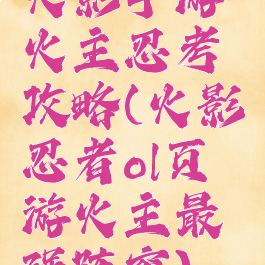 火影手游
火主忍考
攻略(火影
忍者ol页
游火主最
强阵容)